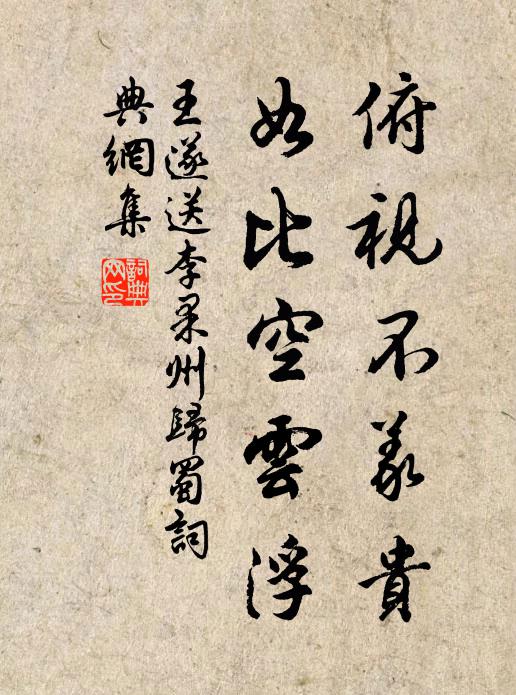 俯視不義貴
如比空雲浮
王遂送李果州歸蜀詞
典網集
詞典网印